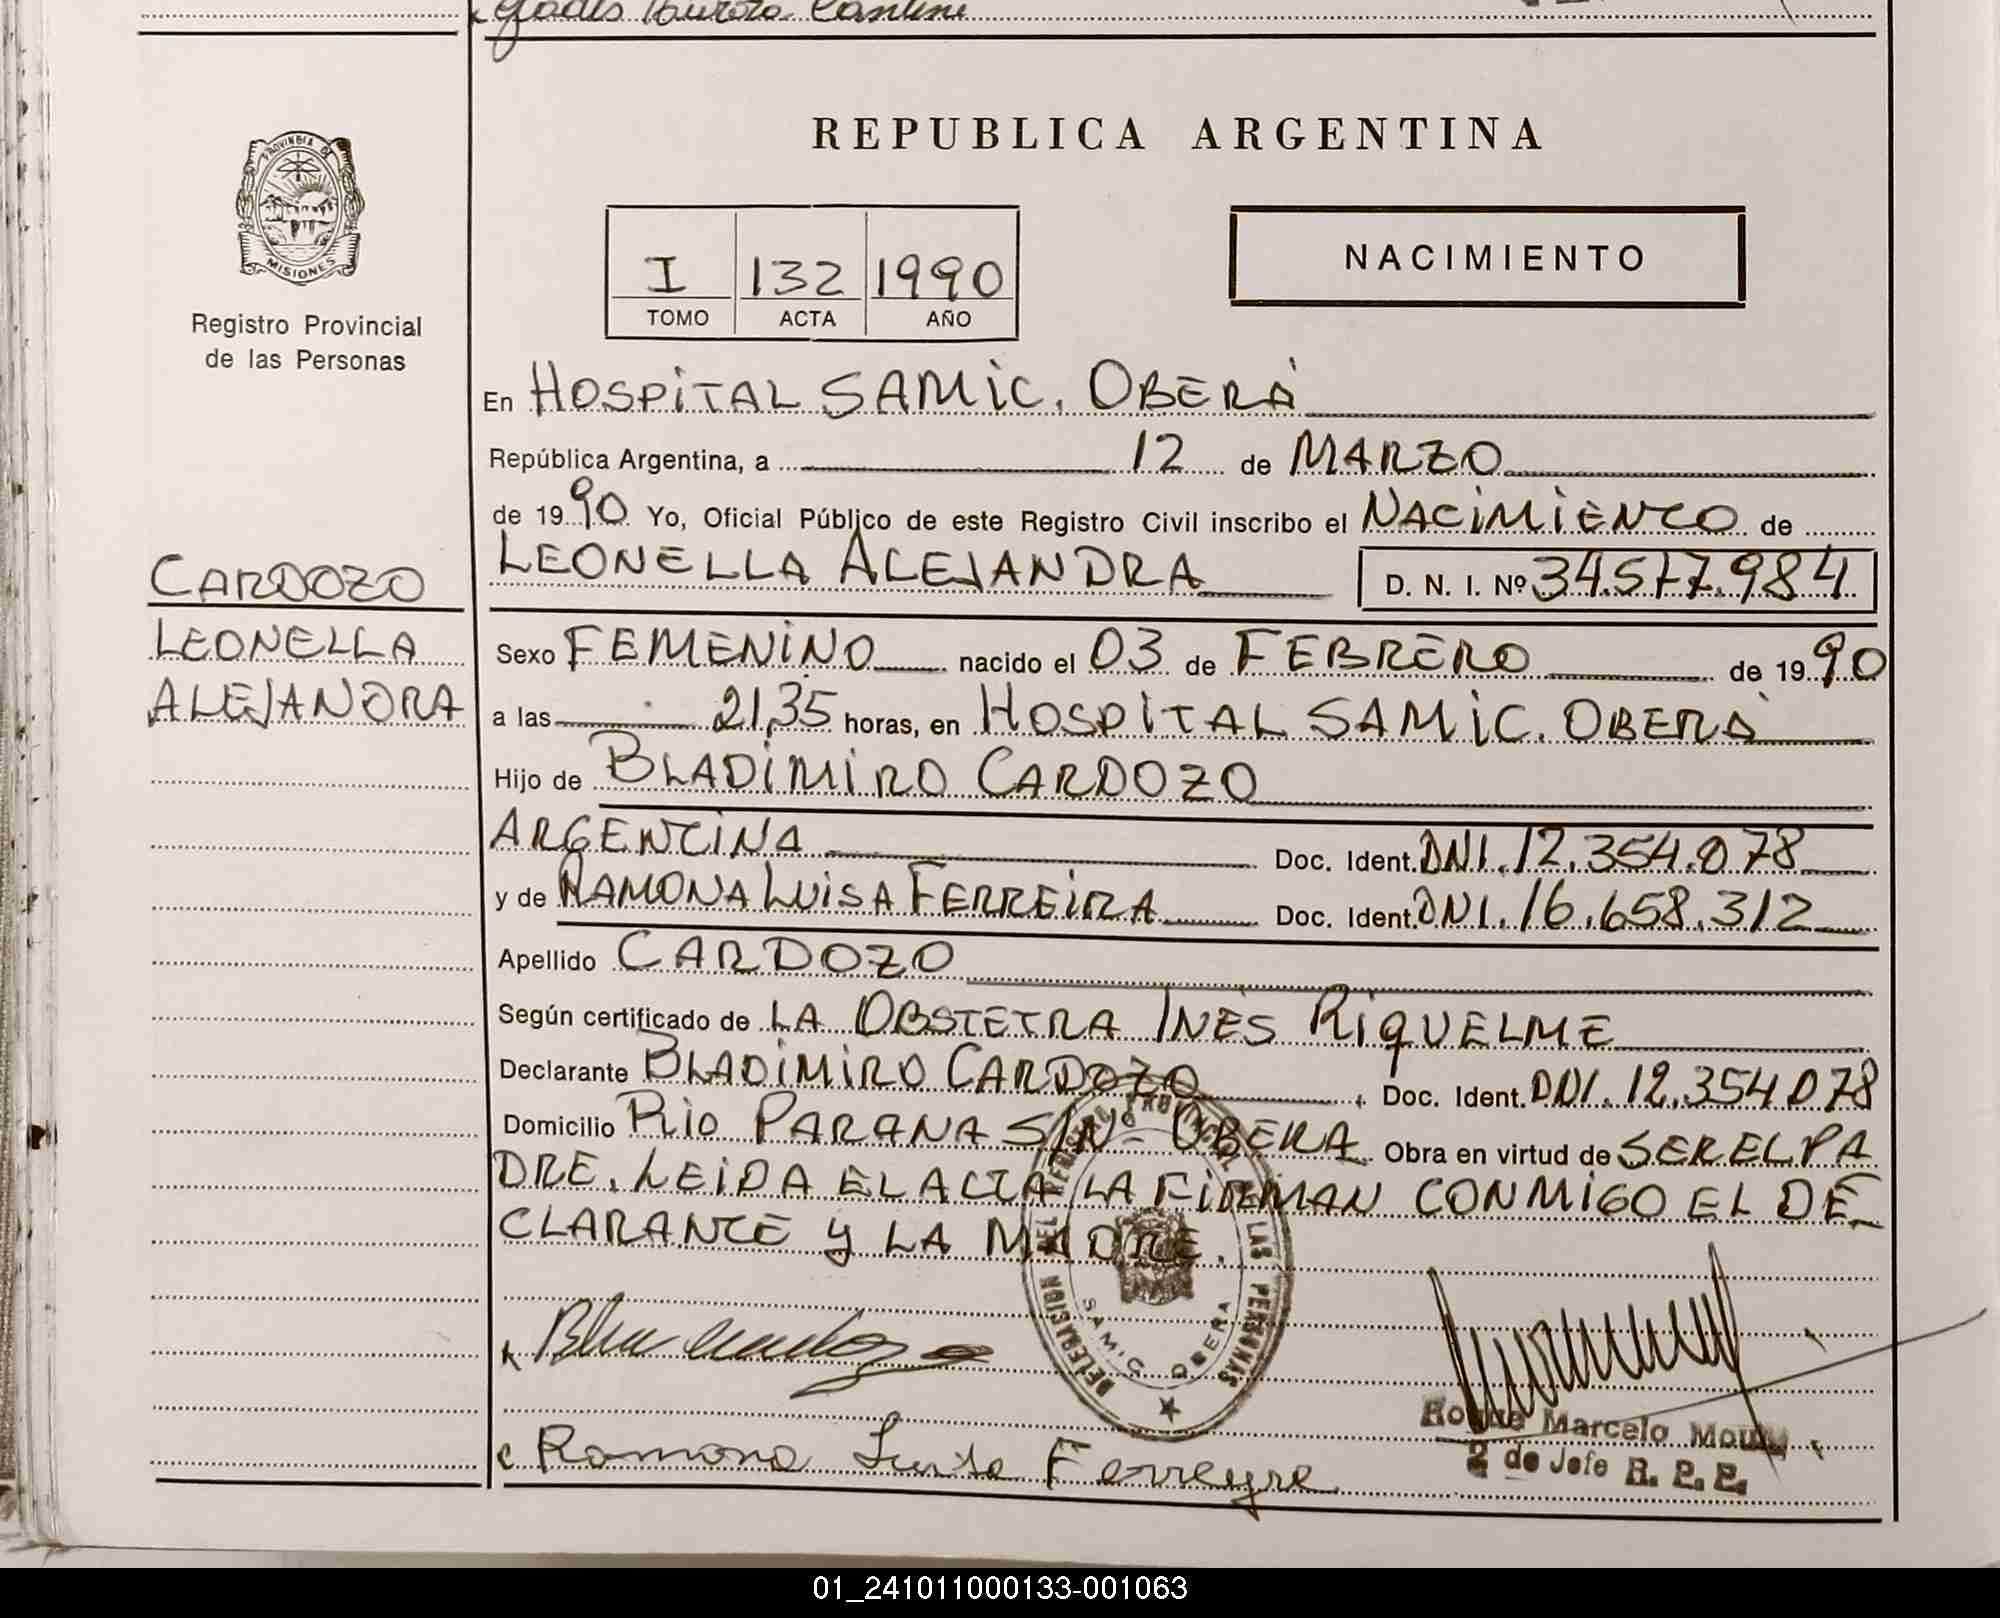 REPUBLICA ARGENTINA
PROVINCIA DE
MISIONES
Registro Provincial
de las Personas
I 132 1990
TOMO ACTA AÑO
NACIMIENTO
En HOSPITAL SAMIC. OBERÁ
República Argentina, a 12 de MARZO
de 1990 Yo, Oficial Público de este Registro Civil inscribo el NACIMIENTO de
LEONELLA ALEJANDRA D. N. I. Nº 34.577.984
CARDOZO
LEONELLA
ALEJANDRA
Sexo FEMENINO nacido el 03 de FEBRERO de 1990
a las 21,35 horas, en HOSPITAL SAMIC. OBERÁ
Hijo de BLADIMIRO CARDOZO
ARGENTINA Doc. Ident. DNI. 12.354.078
y de RAMONA LUISA FERREIRA Doc. Ident. DNI. 16.658.312
Apellido CARDOZO
Según certificado de LA OBSTETRA INÉS RIQUELME
Declarante BLADIMIRO CARDOZO Doc. Ident. DNI. 12.354.078
Domicilio RIO PARANA S/Nº OBERA Obra en virtud de SER EL PA
DRE. LEIDA EL ACTA LA FIRMAN CONMIGO EL DE_
CLARANTE Y LA MADRE.
DELEGACION DEL REGISTRO PROVINCIAL DE LAS PERSONAS
S.A.M.I.C. OBERA
Ramona Luisa Ferreyre
Roque Marcelo
2 de Jefe R. P. P.
01_241011000133-001063